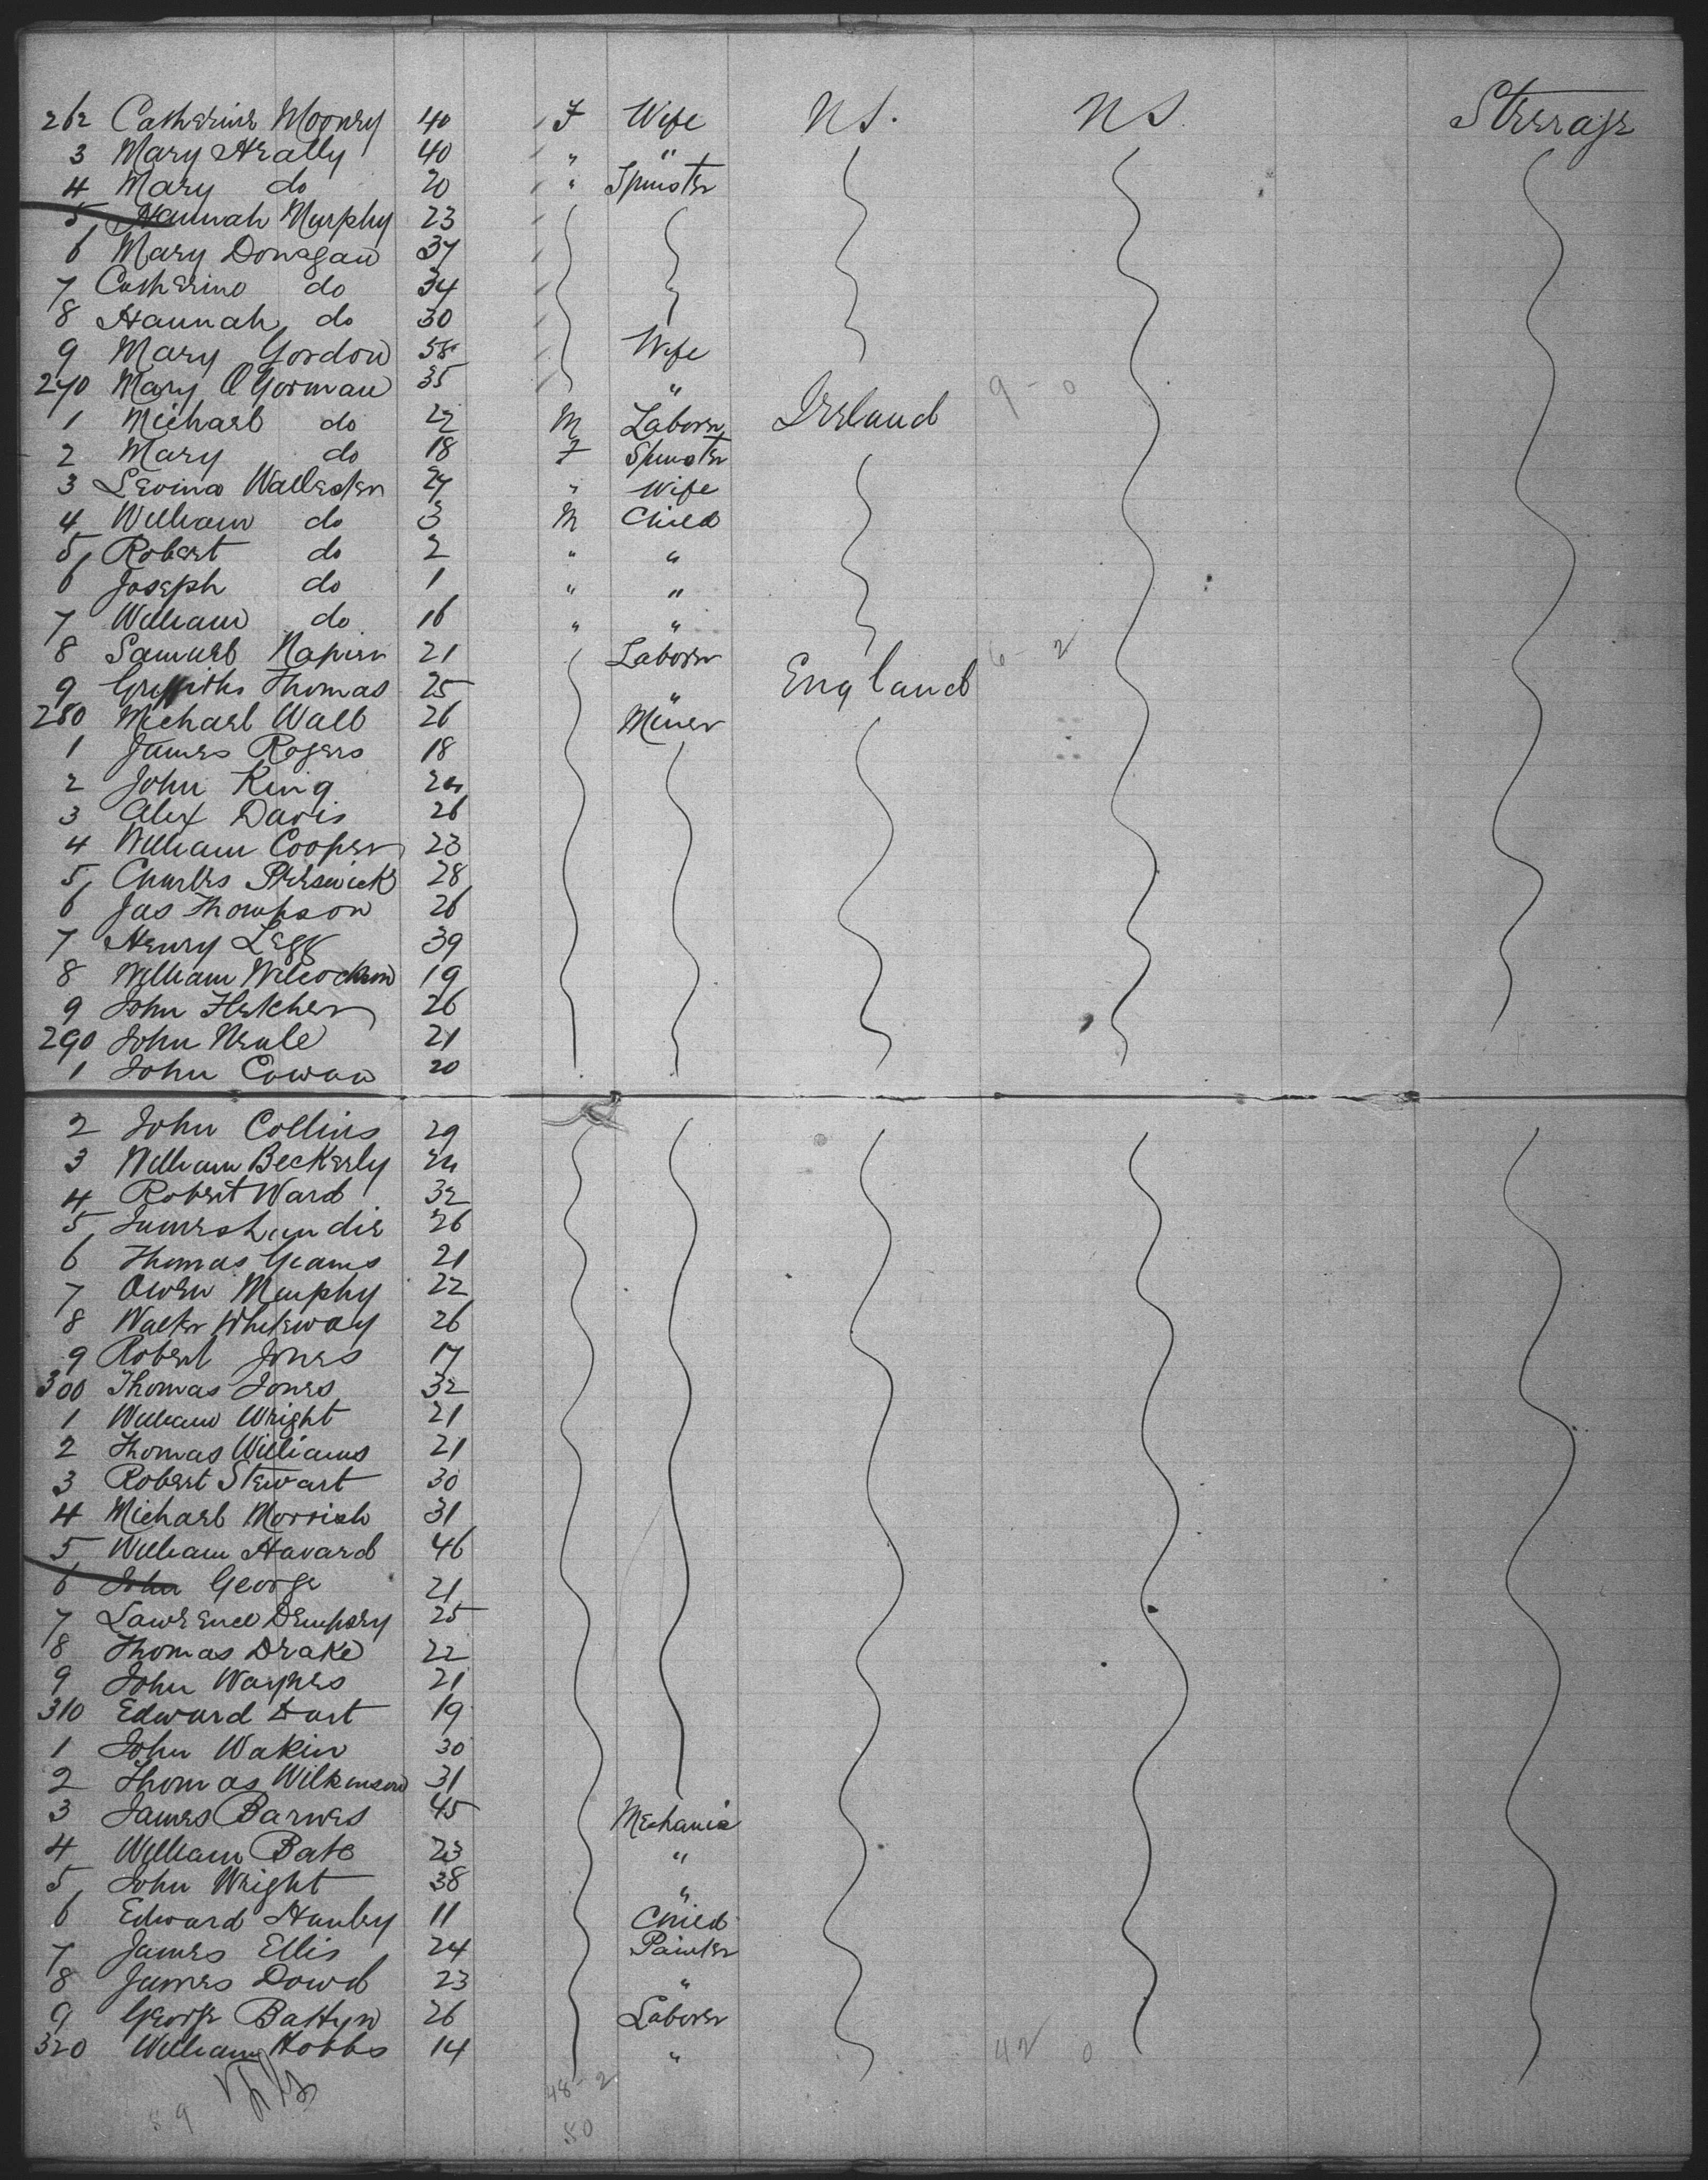 262 Catherine Mooney 40 F Wife U.S. U.S. Steerage
3 Mary Heally 40 " "
4 Mary do 20 " Spinster
5 Hannah Murphy 23
6 Mary Donagan 37
7 Catherine do 34
8 Hannah do 30
9 Mary Gordon 38 Wife
270 Mary O Gorman 35 " 9 - 0
1 Michael do 22 M Laborer Ireland
2 Mary do 18 F Spinster
3 27 " Wife
4 William do 3 M Child
5 Robert do 2 " "
6 Joseph do 1 " "
7 William do 16 " "
8 Samuel Napier 21 Laborer 6 - 2
9 Griffiths Thomas 25 " England
280 Michael Wall 26 Miner
1 James Rogers 18
2 John King
3 Alex Davis 26
4 William Cooper 23
5 Charles 28
6 Jas Thompson 26
7 Henry Legg 39
8 William Wilcockson 19
9 John Fletcher 26
290 John Neale 21
1 John Cowan 20
2 John Collins 29
3 William Beckerly
4 Robert Ward 32
5 James 26
6 Thomas 21
7 Owen Murphy 22
8 Walter Whiteway 26
9 Robert Jones 17
300 Thomas Jones 32
1 William Wright 21
2 Thomas Williams 21
3 Robert Stewart 30
4 Michael Morrish 31
5 William Havard 46
6 John George 21
7 Lawrence Dempsey 25
8 Thomas Drake 22
9 John 21
310 Edward Dart 19
1 John Wakin 30
2 Thomas Wilkinson 31
3 James Barnes 45 Mechanic
4 William Bate 23 "
5 John Wright 38 "
6 Edward Hanley 11 Child
7 James Ellis 24 Painter
8 James Dowd 23 "
9 George Battyn 26 Laborer
320 William Hobbs 14 " 42 0
48 - 2
89
50